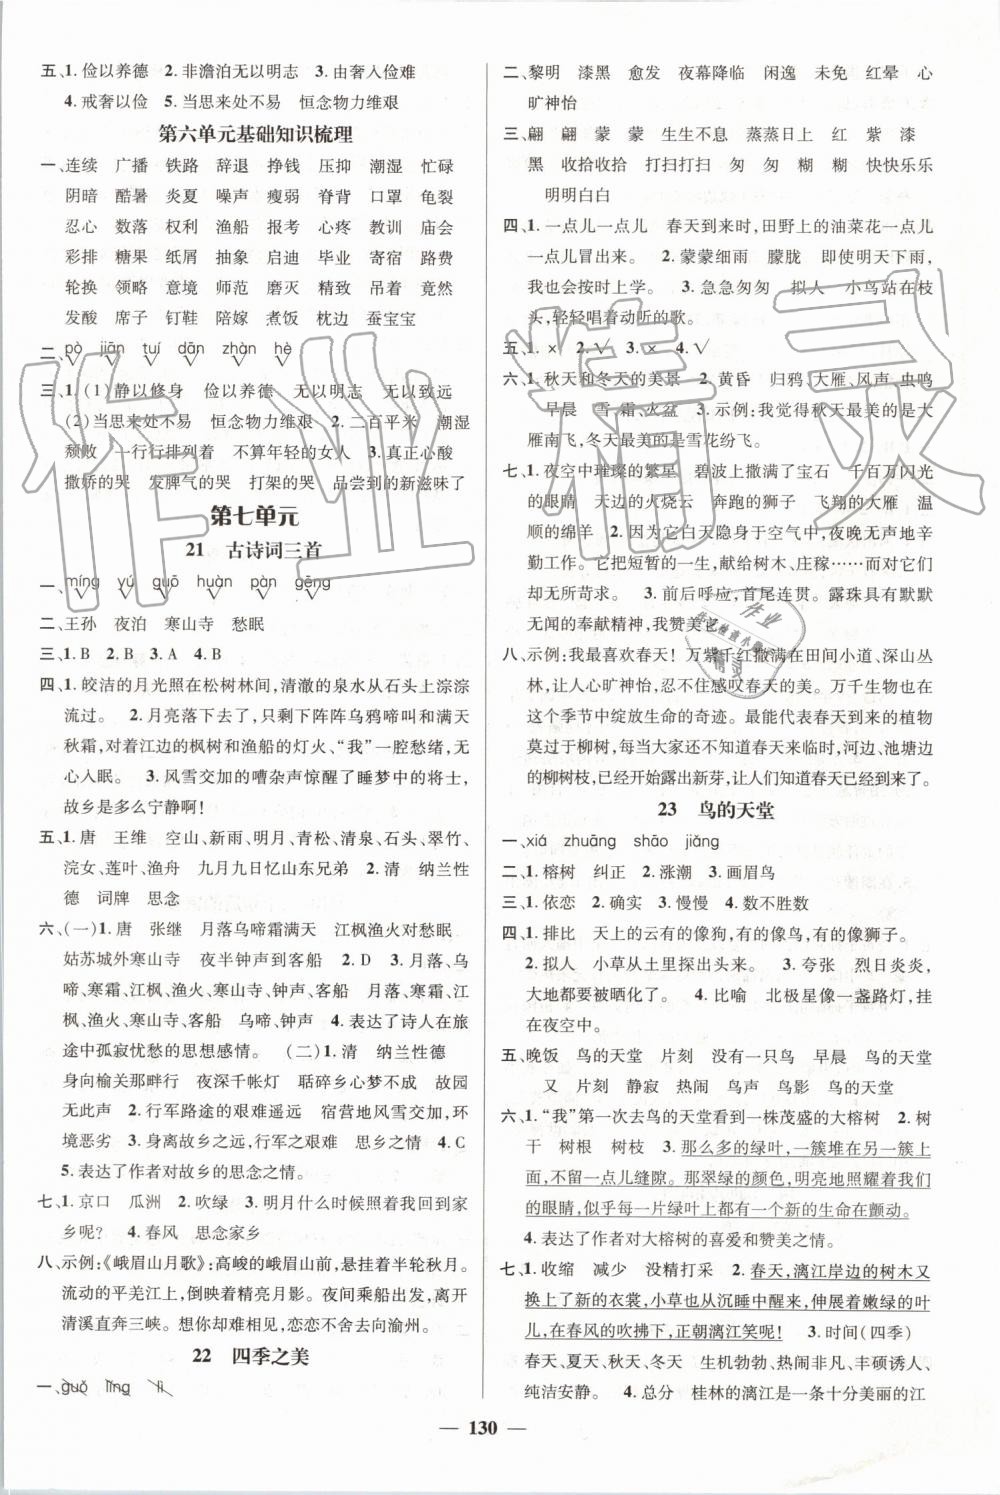 五、1. 俭以养德　2. 非澹泊无以明志　3. 由奢入俭难
4. 戒奢以俭　5. 当思来处不易　恒念物力维艰
第六单元基础知识梳理
一、连续　广播　铁路　辞退　挣钱　压抑　潮湿　忙碌
阴暗　酷暑　炎夏　噪声　瘦弱　脊背　口罩　龟裂
忍心　数落　权利　渔船　报考　心疼　教训　庙会
彩排　糖果　纸屑　抽象　启迪　毕业　寄宿　路费
轮换　领略　意境　师范　磨灭　精致　吊着　竟然
发酸　席子　钉鞋　陪嫁　煮饭　枕边　蚕宝宝
二、pò　jiān　tuí　dān　zhàn　hè
三、1. (1)静以修身　俭以养德　无以明志　无以致远
(2)当思来处不易　恒念物力维艰　2. 二百平米　潮湿
颓败　一行行排列着　不算年轻的女人　3. 真正心酸
撒娇的哭　发脾气的哭　打架的哭　品尝到的新滋味了
第七单元
21　古诗词三首
一、míng　yú　guō　huàn　pàn　gēng
二、王孙　夜泊　寒山寺　愁眠
三、1. B　2. B　3. A　4. B
四、1. 皎洁的月光照在松树林间,清澈的泉水从石头上淙淙
流过。　2. 月亮落下去了,只剩下阵阵乌鸦啼叫和满天
秋霜,对着江边的枫树和渔船的灯火、“我”一腔愁绪,无
心入眠。　3. 风雪交加的嘈杂声惊醒了睡梦中的将士,
故乡是多么宁静啊!
五、1. 唐　王维　空山、新雨、明月、青松、清泉、石头、翠竹、
浣女、莲叶、渔舟　九月九日忆山东兄弟　2. 清　纳兰性
德　词牌　思念
六、(一)1. 唐　张继　月落乌啼霜满天　江枫渔火对愁眠
姑苏城外寒山寺　夜半钟声到客船　2. D　3. 月落、乌
啼、寒霜、江枫、渔火、寒山寺、钟声、客船　月落、寒霜、江
枫、渔火、寒山寺、客船　乌啼、钟声　4. 表达了诗人在旅
途中孤寂忧愁的思想感情。　(二)1. 清　纳兰性德
身向榆关那畔行　夜深千帐灯　聒碎乡心梦不成　故园
无此声　2. 行军路途的艰难遥远　宿营地风雪交加,环
境恶劣　3. 此身离故乡之远,行军之艰难　思乡之情　4. C
5. 表达了作者对故乡的思念之情。
七、1. 京口　瓜洲　2. 吹绿　3. 明月什么时候照着我回到家
乡呢?　4. 春风　思念家乡
八、示例:《峨眉山月歌》:高峻的峨眉山前,悬挂着半轮秋月。
流动的平羌江上,倒映着精亮月影。夜间乘船出发,离开
清溪直奔三峡。想你却难相见,恋恋不舍去向渝州。
22　四季之美
一、guǒ　lǐng　lì
二、黎明　漆黑　愈发　夜幕降临　闲逸　未免　红晕　心
旷神怡
三、翩　翩　蒙　蒙　生生不息　蒸蒸日上　红　紫　漆
黑　收拾收拾　打扫打扫　匆　匆　糊　糊　快快乐乐
明明白白
四、1. 一点儿一点儿　春天到来时,田野上的油菜花一点儿
一点儿冒出来。　2. 蒙蒙细雨　朦胧　即使明天下雨,
我也会按时向上学。　3. 急急匆匆　拟人　小鸟站在枝
头,轻轻唱着动听的歌。
五、1. ×　2. √　3. ×　4. √
六、1. 秋天和冬天的美景　2. 黄昏　归鸦、大雁、风声、虫鸣
早晨　雪、霜、火盆　3. 示例:我觉得秋天最美的是大
雁南飞,冬天最美的是雪花纷飞。
七、1. 夜空中璀璨的繁星　碧波上撒满了宝石　千百万闪光
的眼睛　天边的火烧云　奔跑的狮子　飞翔的大雁　温
顺的绵羊　2. 因为它只是无声无息,在夜空中辛
勤工作。它把短暂的一生,献给树木、庄稼……而对人们却
无所苛求。　3. 前后呼应,首尾连贯。露珠具有默默
无闻的奉献精神,我赞美它。
八、示例:我最喜欢春天!万紫千红撒满在田间小道、深山丛
林,让人心旷神怡,不住感叹春天的美。万千生物也在
这个季节中绽放生命的奇迹。最能代表春天到来的植物
莫过于柳树,每当大家还不知道春天来临时,河边、池塘边
的柳树枝,已经开始露出新芽,让人们知道春天已经来到。
23　鸟的天堂
一、xiá　zhuāng　shāo　jiǎng
二、1. 榕树　纠正　2. 涨潮　3. 画眉鸟
三、1. 依恋　2. 确实　3. 慢慢　4. 数不胜数
四、1. 排比　天上的云有的像狗,有的像鸟,有的像狮子。
2. 拟人　小草从土里探出头来。　3. 夸张　烈日炎炎,
大地都要被烤化了。　4. 比喻　北极星像一盏路灯,挂
在夜空中。
五、晚饭　鸟的天堂　片刻　没有一只鸟　早晨　鸟的天堂
又　片刻　静寂　热闹　鸟声　鸟影　鸟的天堂
六、1. “我”第一次去鸟的天堂看到一株茂盛的大榕树　2. 树
干　树根　树枝　3. 那么多的绿叶,一簇堆在另一簇上
面,不留一点儿缝隙。那翠绿的颜色,明亮地照耀着我们
的眼睛,似乎每一片绿叶上都有一个新的生命在颤动。
4. 表达了作者对大榕树的喜爱和赞美之情。
七、1. 收缩　减少　没精打采　2. 春天,漓江岸边的树木又
换上了新的衣裳,小草也从沉睡中醒来,伸展着嫩绿的叶
儿,在春风的吹拂下,正朝漓江笑呢!　3. 时间(四季)
春天、夏天、秋天、冬天　生机勃勃、热闹非凡、丰硕诱人、
纯洁安静。　4. 总分　桂林的漓江是一条十分美丽的江
— 130 —
作业精灵